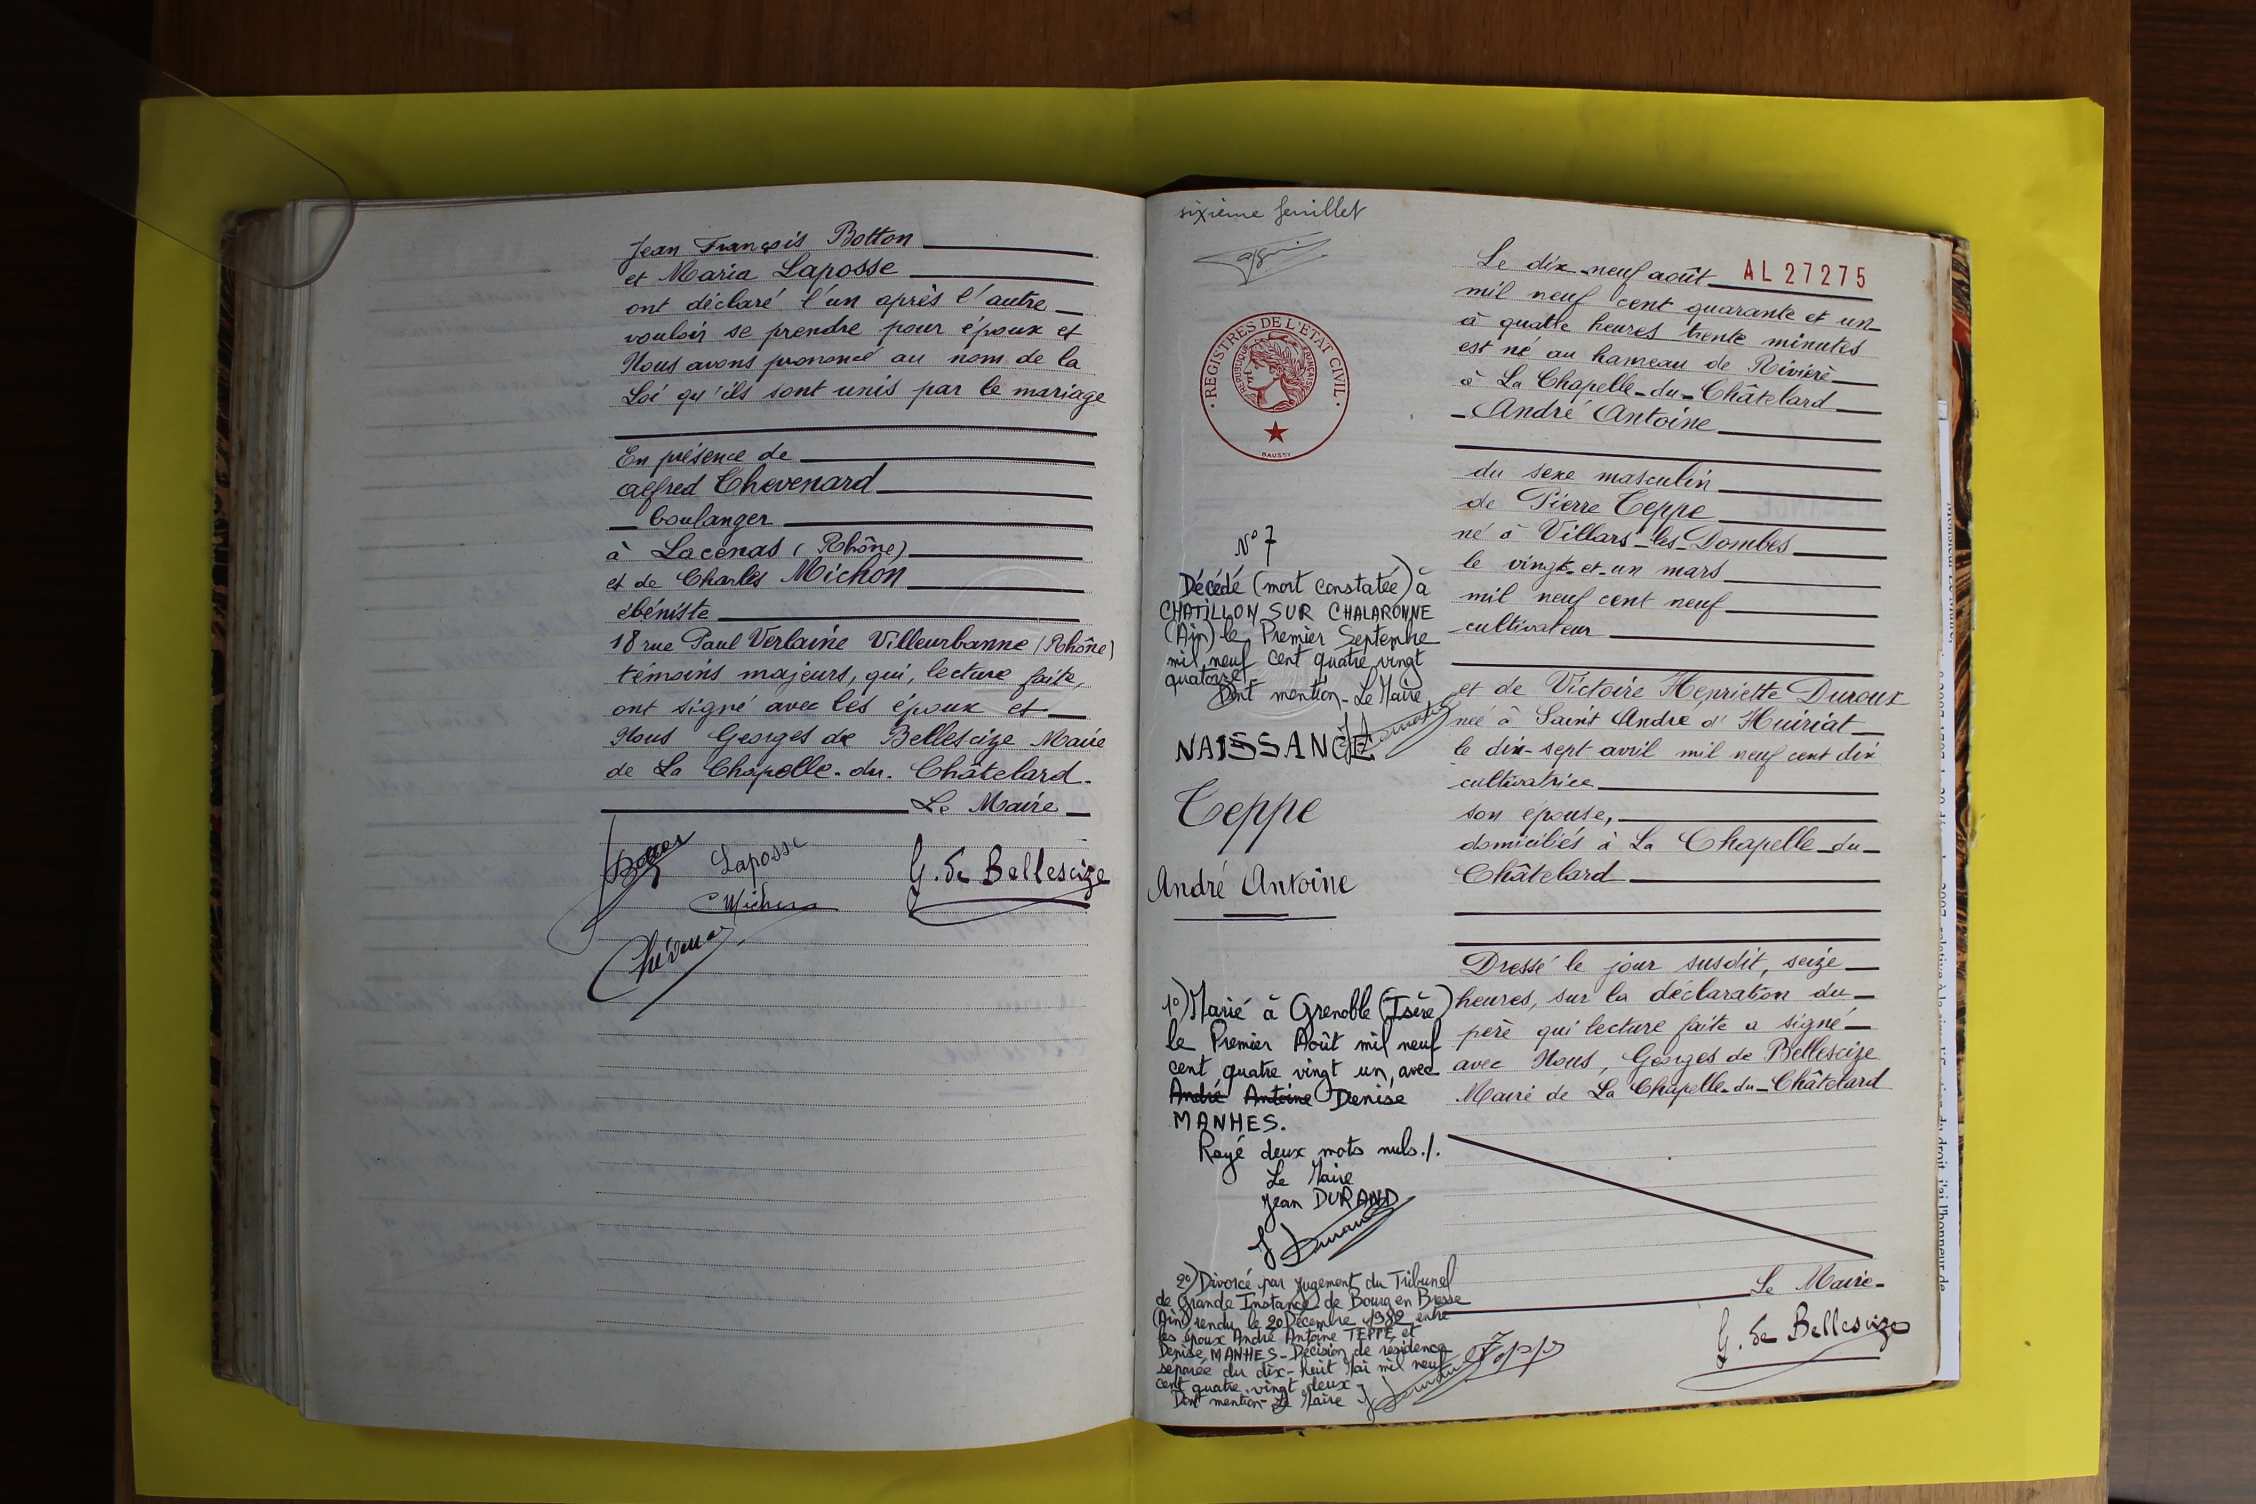 Jean François Botton
et Maria Laposse
ont déclaré l'un après l'autre
vouloir se prendre pour époux et
Nous avons prononcé au nom de la
Loi qu'ils sont unis par le mariage
En présence de
Alfred Chevenard
boulanger
à Lacenas (Rhône)
et de Charles Michon
ébéniste
18 rue Paul Verlaine Villeurbanne (Rhône)
témoins majeurs, qui, lecture faite,
ont signé avec les époux et
Nous Georges de Bellescize Maire
de La Chapelle-du-Châtelard.
Le Maire
Botton
Laposse
G. de Bellescize
Michon
sixième feuillet
REGISTRES DE L'ETAT CIVIL
REPUBLIQUE FRANÇAISE
BAUSSY
N° 7
Décédé (mort constatée) à
CHATILLON SUR CHALARONNE
(Ain) le Premier Septembre
mil neuf cent quatre vingt
quatorze
Dont mention - Le Maire
NAISSANCE
Teppe
André Antoine
1°) Marié à Grenoble (Isère)
le Premier Août mil neuf
cent quatre vingt un, avec
André Antoine Denise
MANHES.
Rayé deux mots nuls./.
Le Maire
Jean DURAND
J Durand
2°) Divorcé par jugement du Tribunal
de Grande Instance de Bourg en Bresse
(Ain) rendu le 20 Décembre 1982 entre
les époux André Antoine TEPPE et
Denise MANHES - Décision de résidence
séparée du dix-huit Mai mil neuf
cent quatre vingt deux -
Dont mention - Le Maire
AL 27275
Le dix-neuf août
mil neuf cent quarante et un
à quatre heures trente minutes
est né au hameau de Rivière
à La Chapelle-du-Châtelard
André Antoine
du sexe masculin
de Pierre Teppe
né à Villars-les-Dombes
le vingt-et-un mars
mil neuf cent neuf
cultivateur
et de Victoire Henriette Duroux
née à Saint André d'Huiriat
le dix-sept avril mil neuf cent dix
cultivatrice
son épouse,
domiciliés à La Chapelle-du-
Châtelard
Dressé le jour susdit, seize
heures, sur la déclaration du
père qui lecture faite a signé
avec Nous, Georges de Bellescize
Maire de La Chapelle-du-Châtelard
Le Maire
Teppe
G. de Bellescize